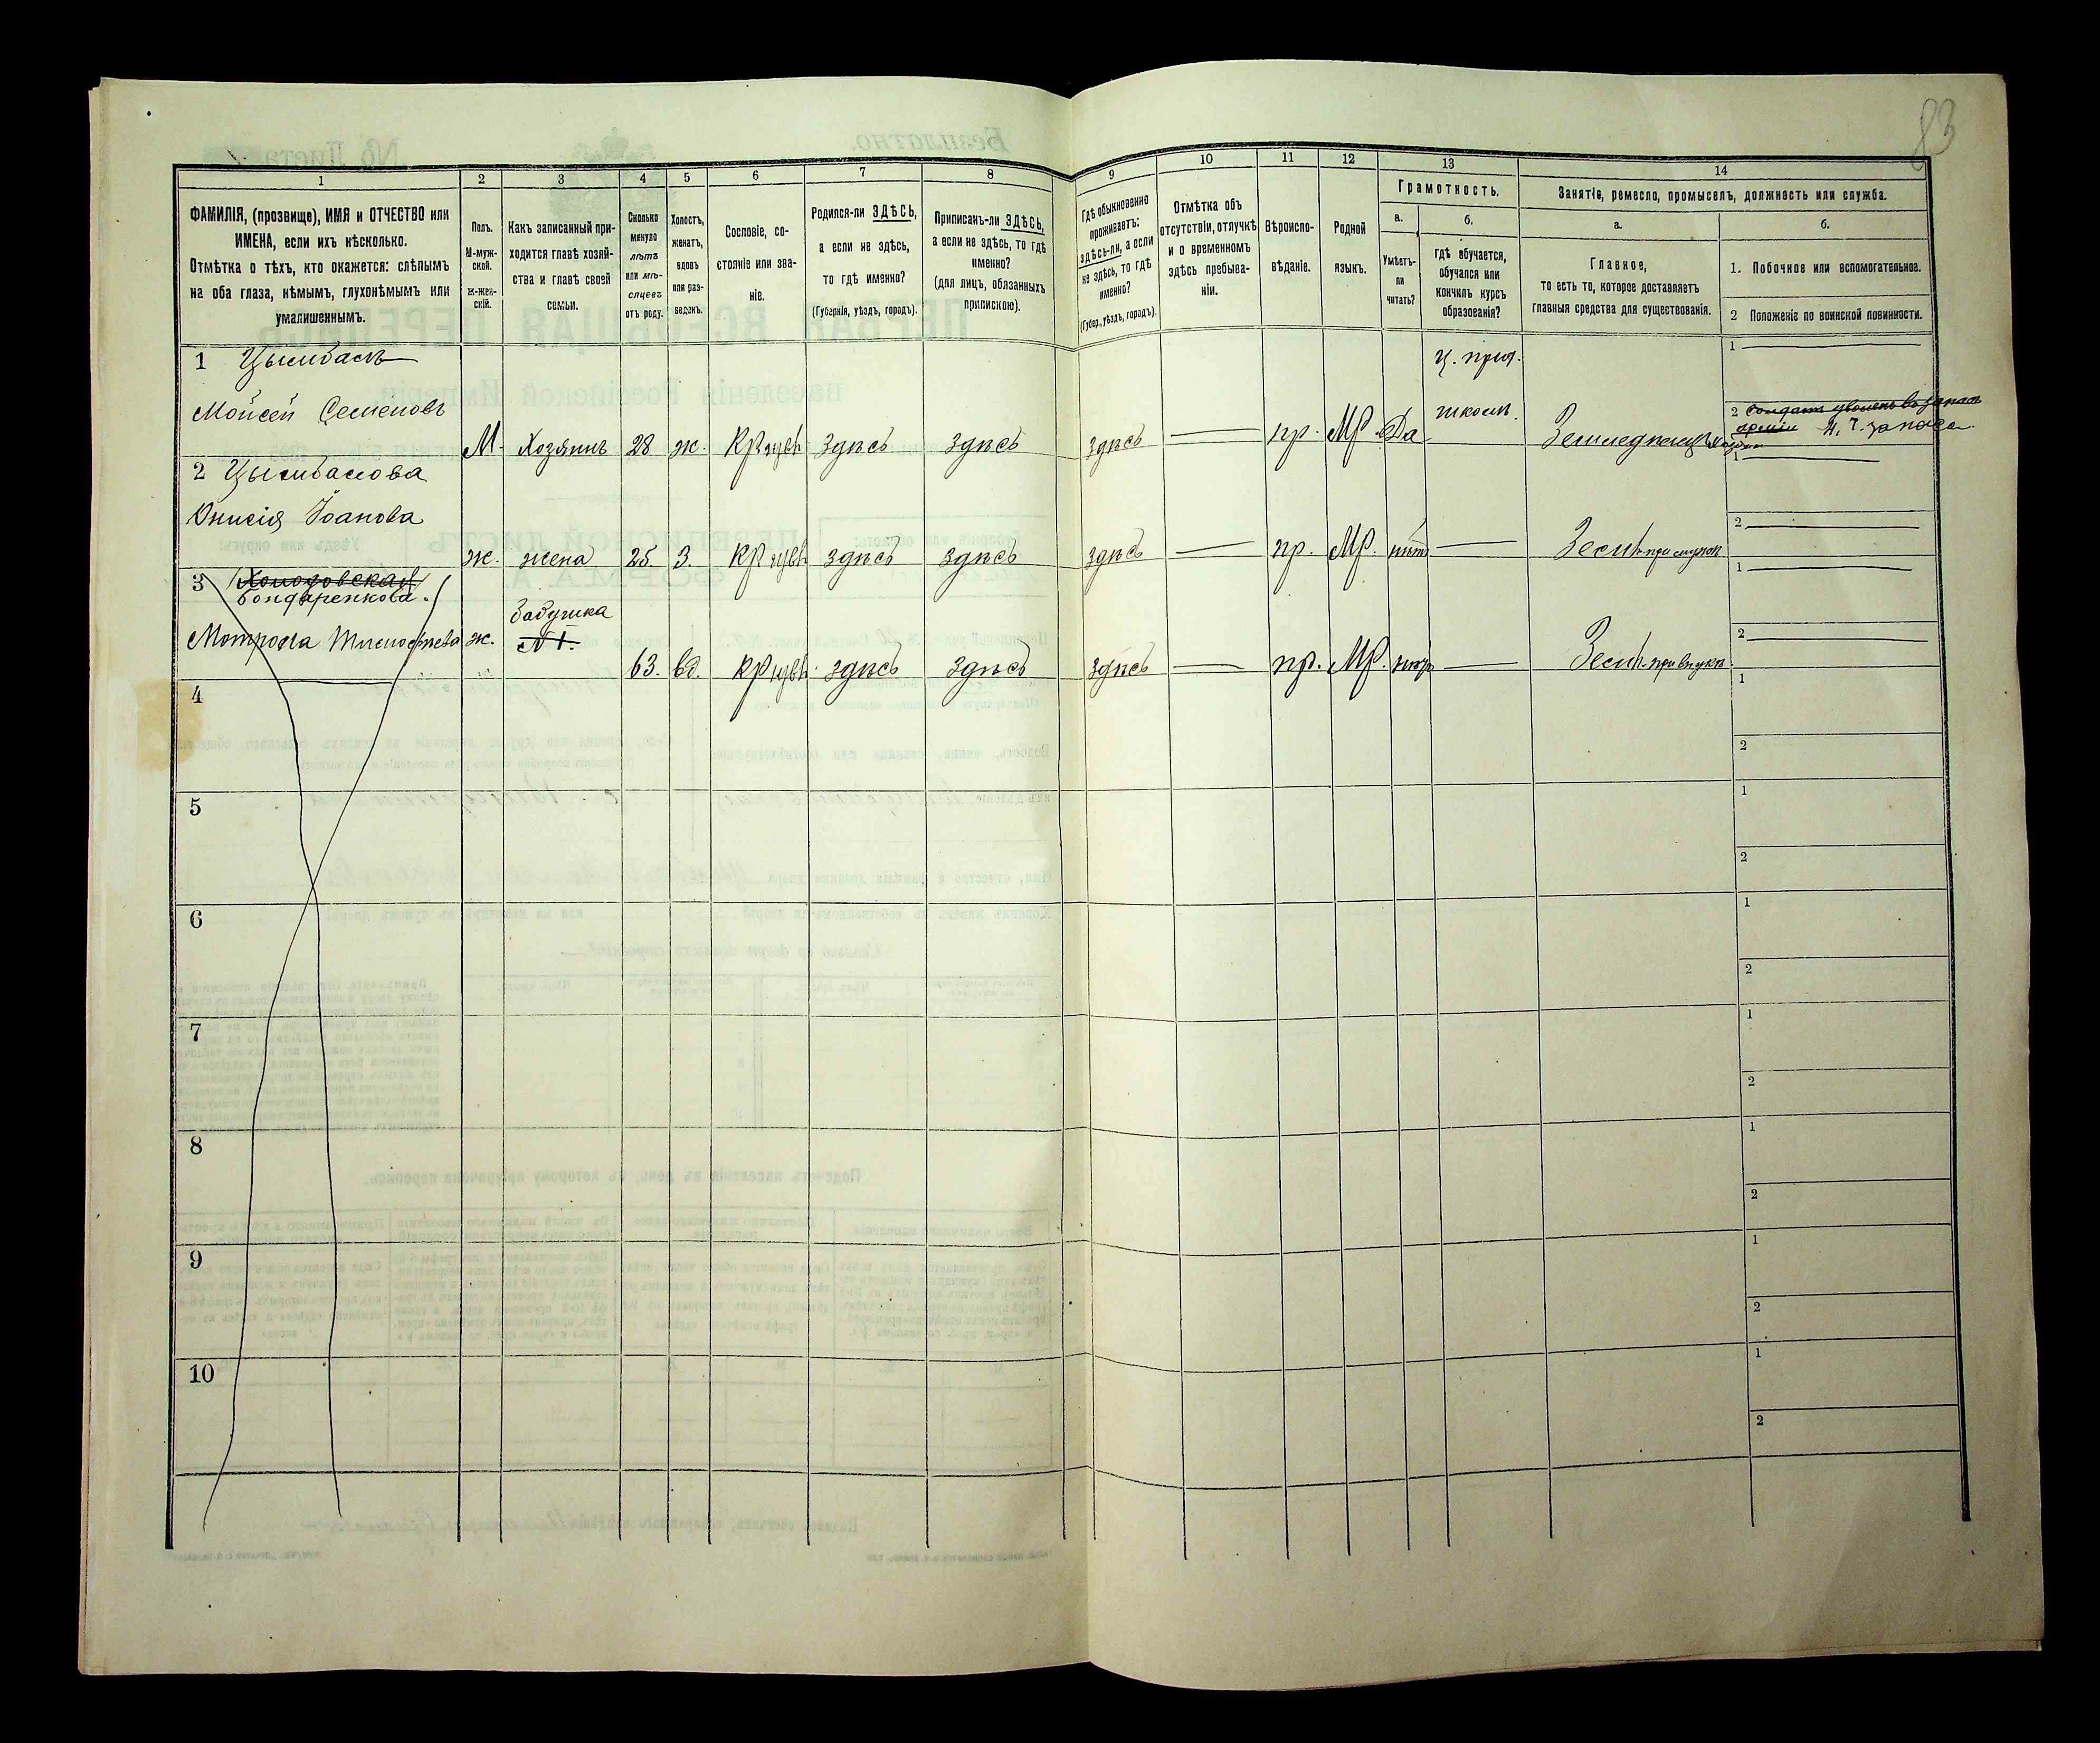 83
1
2
3
4
5
6
7
8
9
10
11
12
13
14
ФАМИЛІЯ, (прозвище), ИМЯ и ОТЧЕСТВО или
ИМЕНА, если ихъ нѣсколько.
Отмѣтка о тѣхъ, кто окажется: слѣпымъ
на оба глаза, нѣмымъ, глухонѣмымъ или
умалишеннымъ.
Полъ.
М-муж-
ской.
Ж-жен-
скій.
Какъ записанный при-
ходится главѣ хозяй-
ства и главѣ своей
семьи.
Сколько
минуло
лѣтъ
или мѣ-
сяцевъ
отъ роду.
Холостъ,
женатъ,
вдовъ
или раз-
веденъ.
Сословіе, со-
стояніе или зва-
ніе.
Родился-ли ЗДѢСЬ,
а если не здѣсь,
то гдѣ именно?
(Губернія, уѣздъ, городъ).
Приписанъ-ли ЗДѢСЬ,
а если не здѣсь, то гдѣ
именно?
(для лицъ, обязанныхъ
припискою).
Гдѣ обыкновенно
проживаетъ:
здѣсь-ли, а если
не здѣсь, то гдѣ
именно?
(Губер., уѣздъ, городъ).
Отмѣтка объ
отсутствіи, отлучкѣ
и о временномъ
здѣсь пребыва-
ніи.
Вѣроиспо-
вѣданіе.
Родной
языкъ.
Грамотность.
а.
Умѣетъ-
ли
читать?
б.
гдѣ обучается,
обучался или
кончилъ курсъ
образованія?
Занятіе, ремесло, промыселъ, должность или служба.
а.
Главное,
то есть то, которое доставляетъ
главныя средства для существованія.
б.
1. Побочное или вспомогательное.
2 Положеніе по воинской повинности.
1 Цымбалъ
Мойсей Семеновъ
М. Хозяинъ 28 ж. здѣсь здѣсь здѣсь пр. МР. Да
школ.
1
2 Солдатъ уволенъ въ запасъ
арміи Н. Ч. запаса
2 Цымбалова
Онисія Іоанова
ж. жена 25 З. здѣсь здѣсь здѣсь пр. МР. нѣтъ
1
2
3 Холодовская
Бондаренкова.
Мотрона Тимофеева ж.
бабушка
№ 1.
63. вд. здѣсь здѣсь здѣсь пр. МР.
1
2
4
1
2
5
1
2
6
1
2
7
1
2
8
1
2
9
1
2
10
1
2